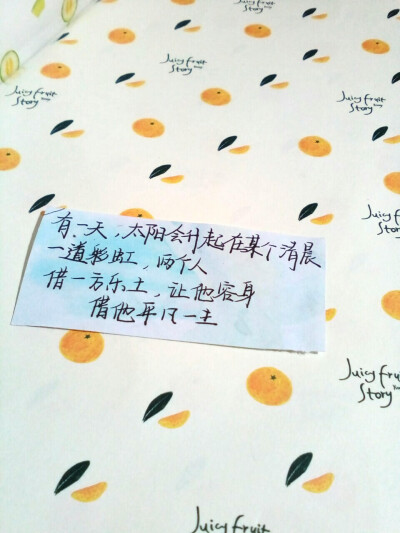 Juicy fruit
Story
Juicy fruit
Story
Juicy fruit
Story
Juicy fruit
Story
有一天，太阳会升起在某个清晨
一道彩虹，两个人
借一方乐土，让他容身
借他平凡一生
Juicy fruit
Story
Juicy fruit